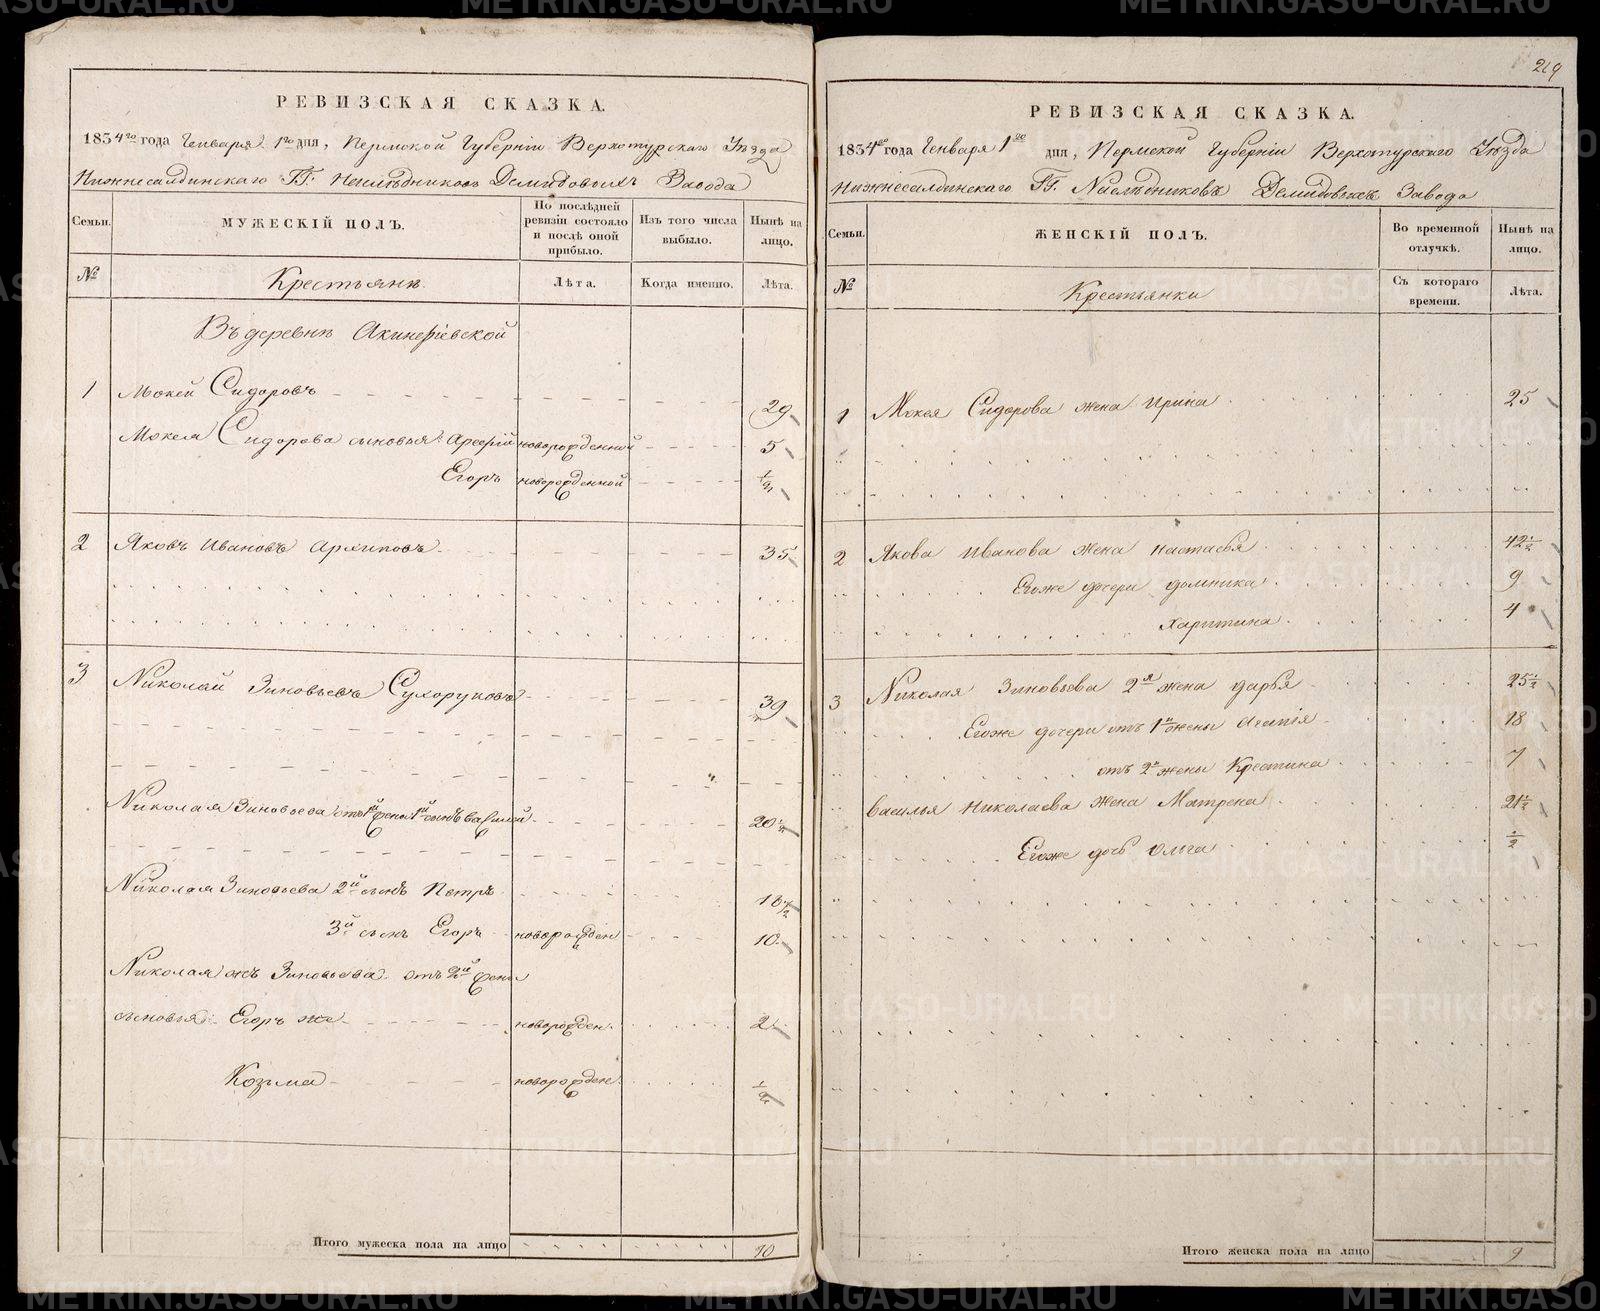 РЕВИЗСКАЯ СКАЗКА.
1834го года Генваря 1го дня, Пермской Губерніи Верхотурскаго Уѣзда
Нижнесалдинскаго ГГ. Наслѣдниковъ Демидовыхъ Завода
Семьи.
МУЖЕСКІЙ ПОЛЪ.
По послѣдней ревизіи состояло и послѣ оной прибыло.
Изъ того числа выбыло.
Нынѣ на лицо.
№
Крестьянъ.
Лѣта.
Когда именно.
Лѣта.
Въ деревнѣ Акинфіевской
1 Мокей Сидоровъ 29
Мокея Сидорова сыновья: новорожденной 5
Егоръ новорожденной 1/2
2 Яковъ Ивановъ Архиповъ 35
3 Николай Зиновьевъ Сухоруковъ 39
Николая Зиновьева отъ 1й жены 1й сынъ Василей 20 1/2
Николая Зиновьева 2й сынъ Петръ 18 1/2
3й сынъ Егоръ новорожден 10
Николая жъ Зиновьева отъ 2й жены
сыновья: Егоръ же новорожден. 2
Козьма новорожден. 1/2
Итого мужеска пола на лицо 10
219
РЕВИЗСКАЯ СКАЗКА.
1834го года Генваря 1го дня, Пермской Губерніи Верхотурскаго Уѣзда
Нижнесалдинскаго ГГ. Наслѣдниковъ Демидовыхъ Завода
Семьи.
ЖЕНСКІЙ ПОЛЪ.
Во временной отлучкѣ.
Нынѣ на лицо.
№
Крестьянки
Съ котораго времени.
Лѣта.
1 Мокея Сидорова жена Ирина 25
2 Якова Иванова жена Настасья 42 1/2
Егоже дочери Домника 9
Харитина 4
3 Николая Зиновьева 2я жена Дарья 25 1/2
Егоже дочери отъ 1й жены Агапія 18
отъ 2й жены Крестина 7
Василья Николаева жена Матрена 21 1/2
Егоже дочь Ольга 1/2
Итого женска пола на лицо 9
METRIKI.GASO-URAL.RU